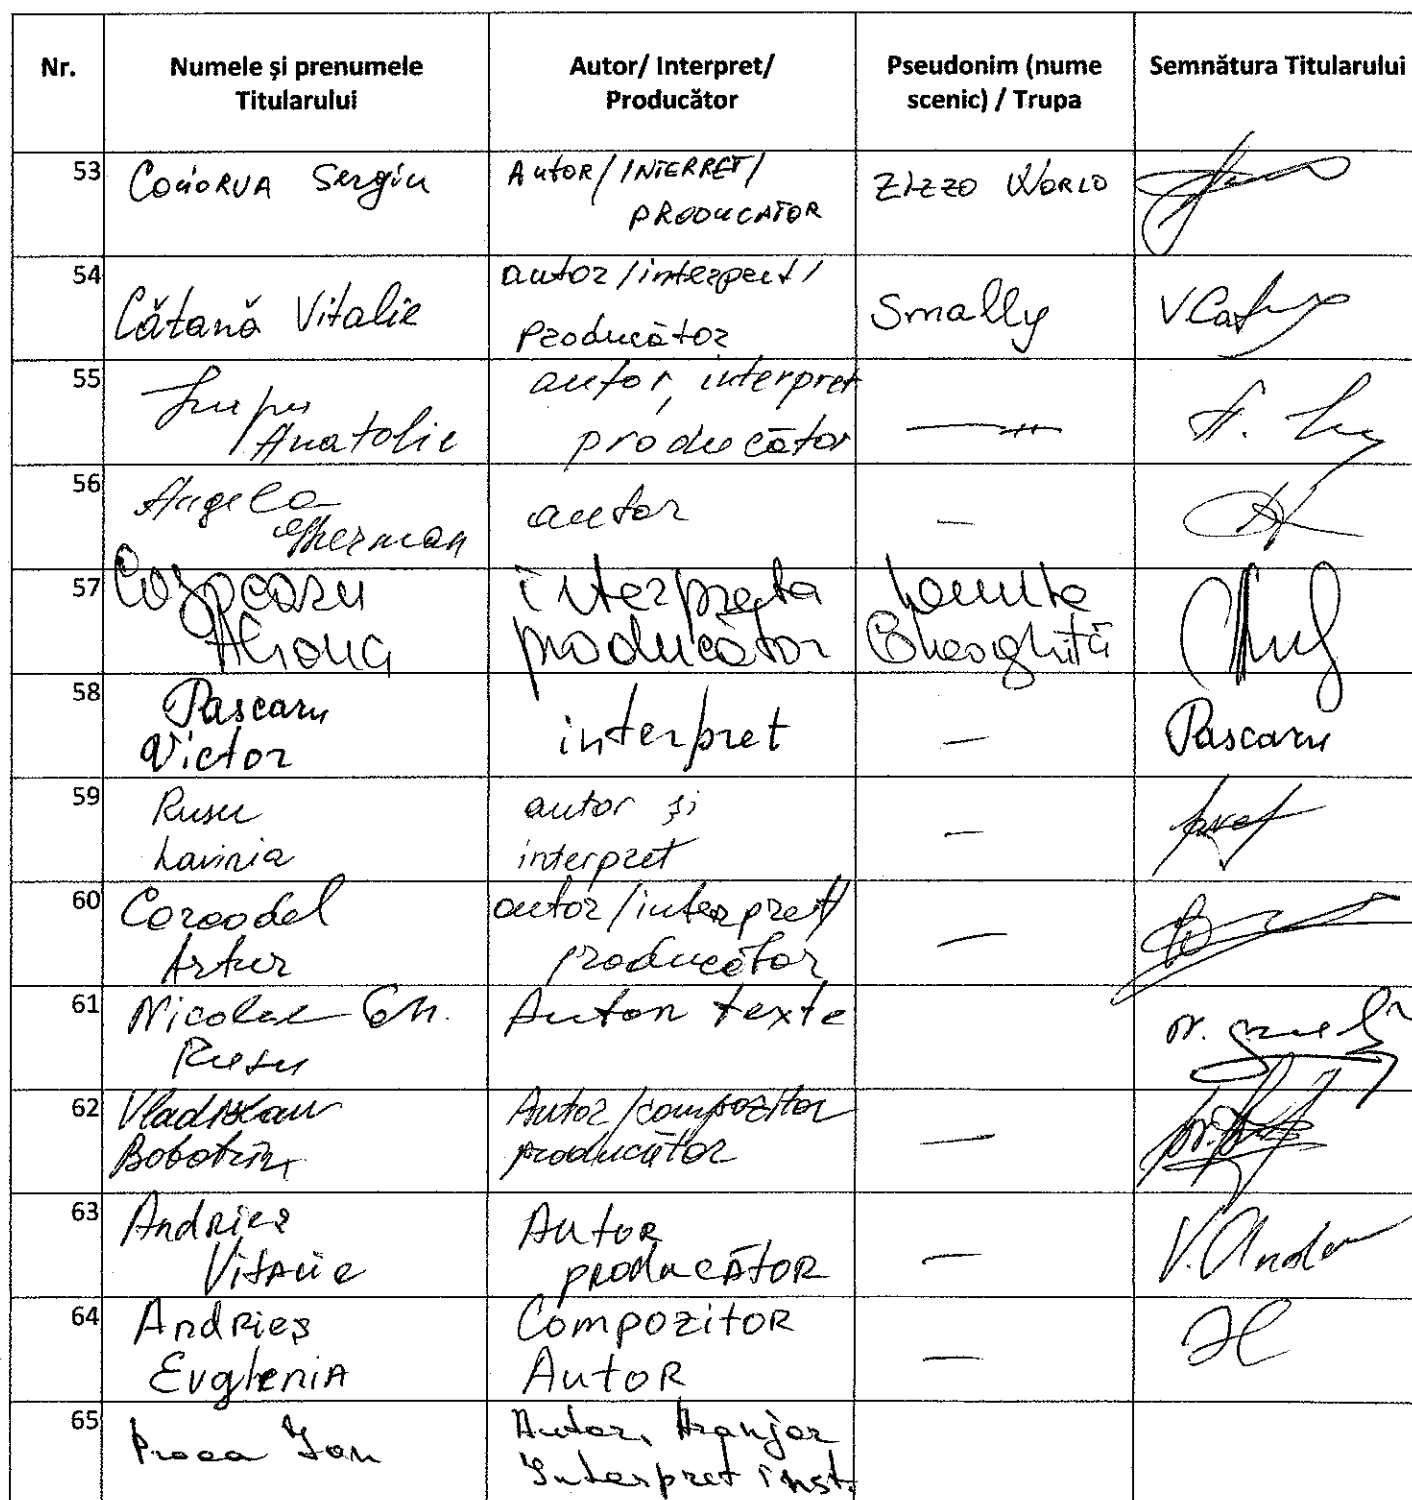 Nr.
Numele și prenumele
Titularului
Autor/ Interpret/
Producător
Pseudonim (nume
scenic) / Trupa
Semnătura Titularului
53
Sergiu
Autor/INTERRET/
PRODUCATOR
ZIZZO WORLD
54
Cătană Vitalie
autor/interpret/
Producător
Smally
V.Cat
55
Lupu
Anatolie
autor, interpret
producător
56
Angela
Gherman
autor
—
57
Cojocaru
Aliona
interpreta
producător
Leunte
Gheorghiță
58
Pascaru
Victor
interpret
—
Pascaru
59
Rusu
Lavinia
autor și
interpret
—
60
Coroodel
Artur
autor/interpret/
producător
—
61
Nicolae Gh.
Rusu
Autor texte
62
Vladislav
Bobotrîc
Autor/compozitor
producător
—
63
Andrieș
Vitalie
Autor
producător
—
V.Andr
64
Andrieș
Evghenia
Compozitor
Autor
—
65
Proca Ion
Autor, Aranjor
Interpret inst.